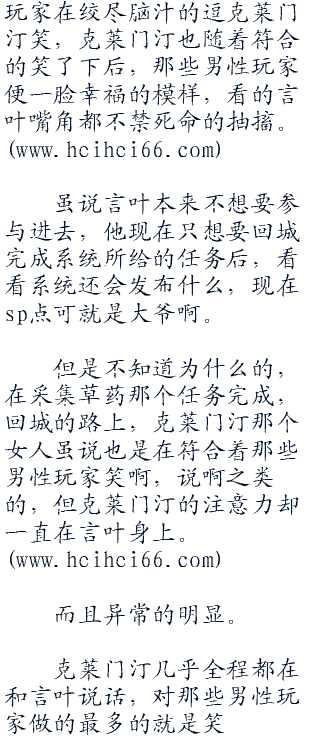 玩家在绞尽脑汁的逗克莱门
汀笑，克莱门汀也随着符合
的笑了下后，那些男性玩家
便一脸幸福的模样，看的言
叶嘴角都不禁死命的抽搐。
(www.hcihci66.com)
虽说言叶本来不想要参
与进去，他现在只想要回城
完成系统所给的任务后，看
看系统还会发布什么，现在
sp点可就是大爷啊。
但是不知道为什么的，
在采集草药那个任务完成，
回城的路上，克莱门汀那个
女人虽说也是在符合着那些
男性玩家笑啊，说啊之类
的，但克莱门汀的注意力却
一直在言叶身上。
(www.hcihci66.com)
而且异常的明显。
克莱门汀几乎全程都在
和言叶说话，对那些男性玩
家做的最多的就是笑